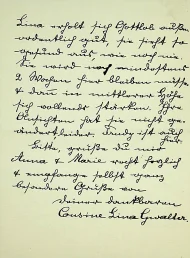 Lina erholt sich Gottlob außer-
ordentlich gut, sie sieht so
gesund aus wie noch nie.
Sie wird noch mindestens
2 Wochen hier bleiben müssen
& dann im mittlerer Höhe
sich vollends stärken. Ihre
Ansichten hat sie nicht ge-
ändert leider. Lindy ist auch
hier.
Bitte, grüße du mir
Anna & Marie recht herzlich
& empfange selbst ganz
besondere Grüße von
deiner dankbaren
Cousine Lina Gwalter.